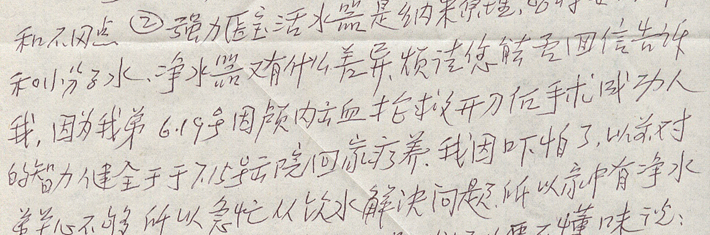 和不同点 ②强力医宝活水器是纳米原理，
和小分子水、净水器又有什么差异.烦请您能否回信告诉
我,因为我弟 6.19号因颅内出血抢救开刀后手术成功人
的智力健全于于7.15号出院回家疗养.我因吓怕了,以前对
关心不够 所以急忙从饮水解决问题.所以家中有净水
不懂 味说: